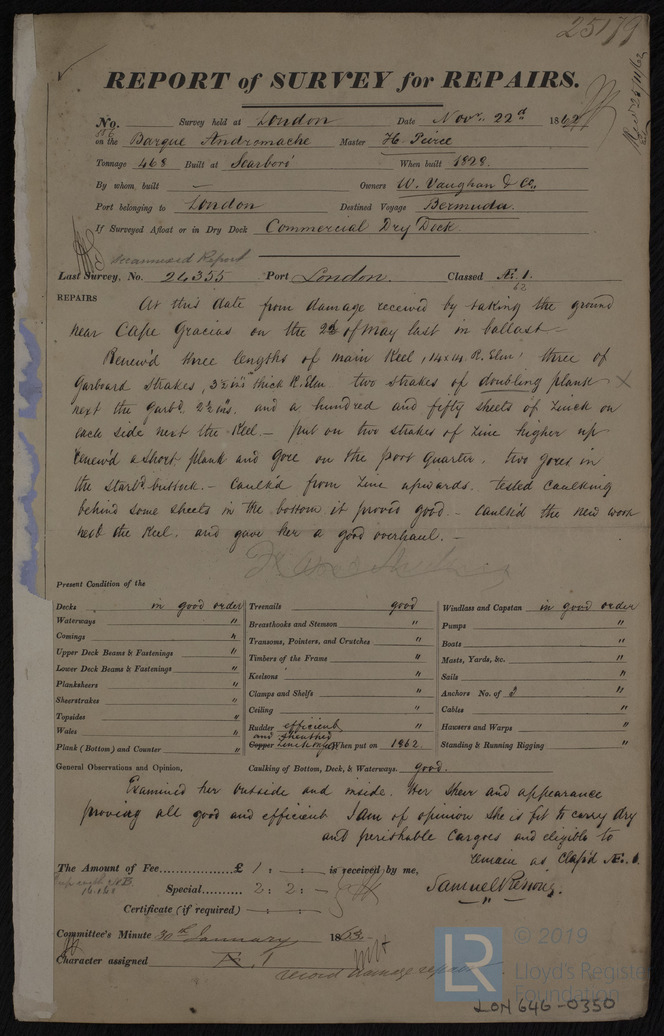 25179
REPORT of SURVEY for REPAIRS.
No. Survey held at London Date Novr. 22d 1862
on the Barque Andromache Master H. Peirce
Tonnage 468 Built at Scarboro' When built 1828.
By whom built — Owners W. Vaughan & Co.,
Port belonging to London Destined Voyage Bermuda.
If Surveyed Afloat or in Dry Dock Commercial Dry Dock
Report
Last Survey, No. 24355 Port London. Classed Æ 1.
62
REPAIRS At this date from damage received by taking the ground
near Cape Gracias on the 2d of May last in ballast —
Renew'd three lengths of main Keel, 14 x 14 R. Elm, three of
Garboard strakes, 3½ ins thick R. Elm two strakes of doubling plank X
next the Garbd. 2½ ins. and a hundred and fifty sheets of Zinck on
each side next the Keel. — put on two strakes of Zinc higher up
renew'd a short plank and gore on the port quarter, two gores in
the starbd. buttock. — Caulk'd from Zinc upwards. tested caulking
behind some sheets in the bottom it prov'd good. — caulk'd the new work
next the Keel, and gave her a good overhaul. —
Present Condition of the
Decks in good order
Waterways "
Comings "
Upper Deck Beams & Fastenings "
Lower Deck Beams & Fastenings "
Planksheers "
Sheerstrakes "
Topsides "
Wales "
Plank (Bottom) and Counter "
Treenails good
Breasthooks and Stemson "
Transoms, Pointers, and Crutches "
Timbers of the Frame "
Keelsons "
Clamps and Shelfs "
Ceiling "
Rudder efficient "
and sheathed
Copper When put on 1862.
Windlass and Capstan in good order
Pumps "
Boats "
Masts, Yards, &c. "
Sails "
Anchors No. of 3 "
Cables "
Hawsers and Warps "
Standing & Running Rigging "
General Observations and Opinion, Caulking of Bottom, Deck, & Waterways. good.
Examined her outside and inside. Her sheer and appearance
proving all good and efficient I am of opinion she is fit to carry dry
and perishable Cargoes and eligible to
remain as Class'd Æ. 1.
The Amount of Fee £ 1 : — : — is received by me,
Special 2 : 2 : —
Samuel
Certificate (if required) — : — : —
Committee's Minute 30th January 1863.
Character assigned Æ 1
record damage repairs
LR
© 2019
Lloyd's Register
Foundation
LON 646-0350